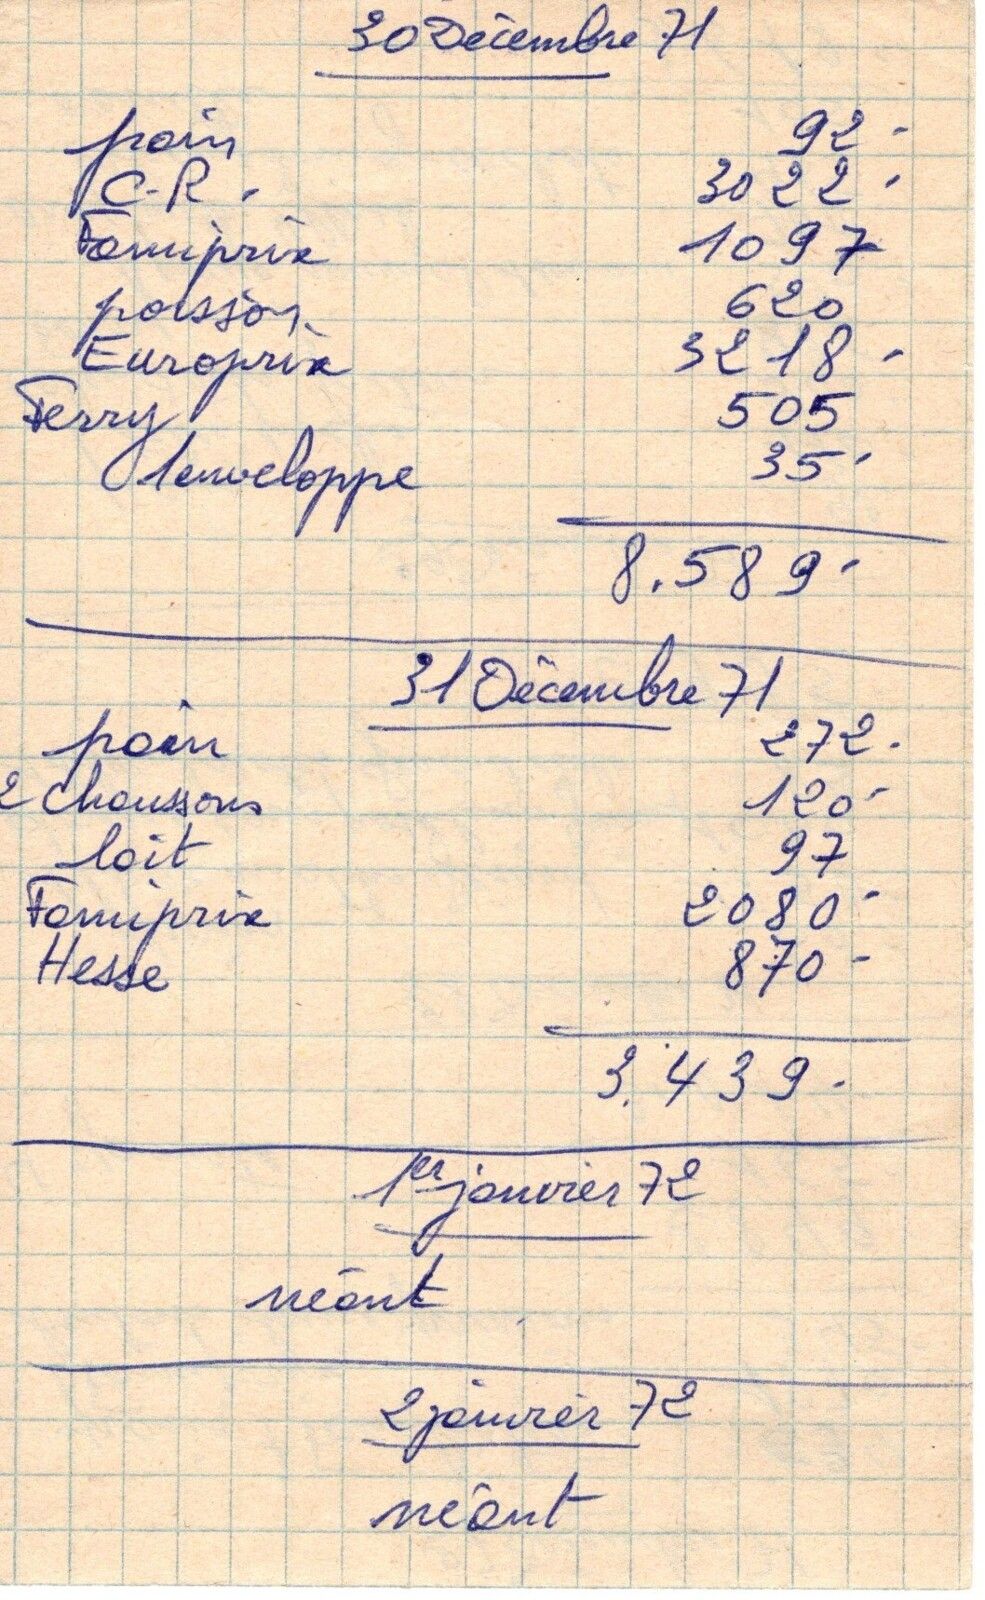 30 Décembre 71
pain 92-
C-R. 3022-
Famiprix 1097
poisson 620
Europrix 3218-
Ferry 505
1 enveloppe 35-
8.589-
31 Décembre 71
pain 272.
2 chaussons 120-
lait 97
Famiprix 2080-
Hesse 870-
3.439.
1er janvier 72
néant
2 janvier 72
néant